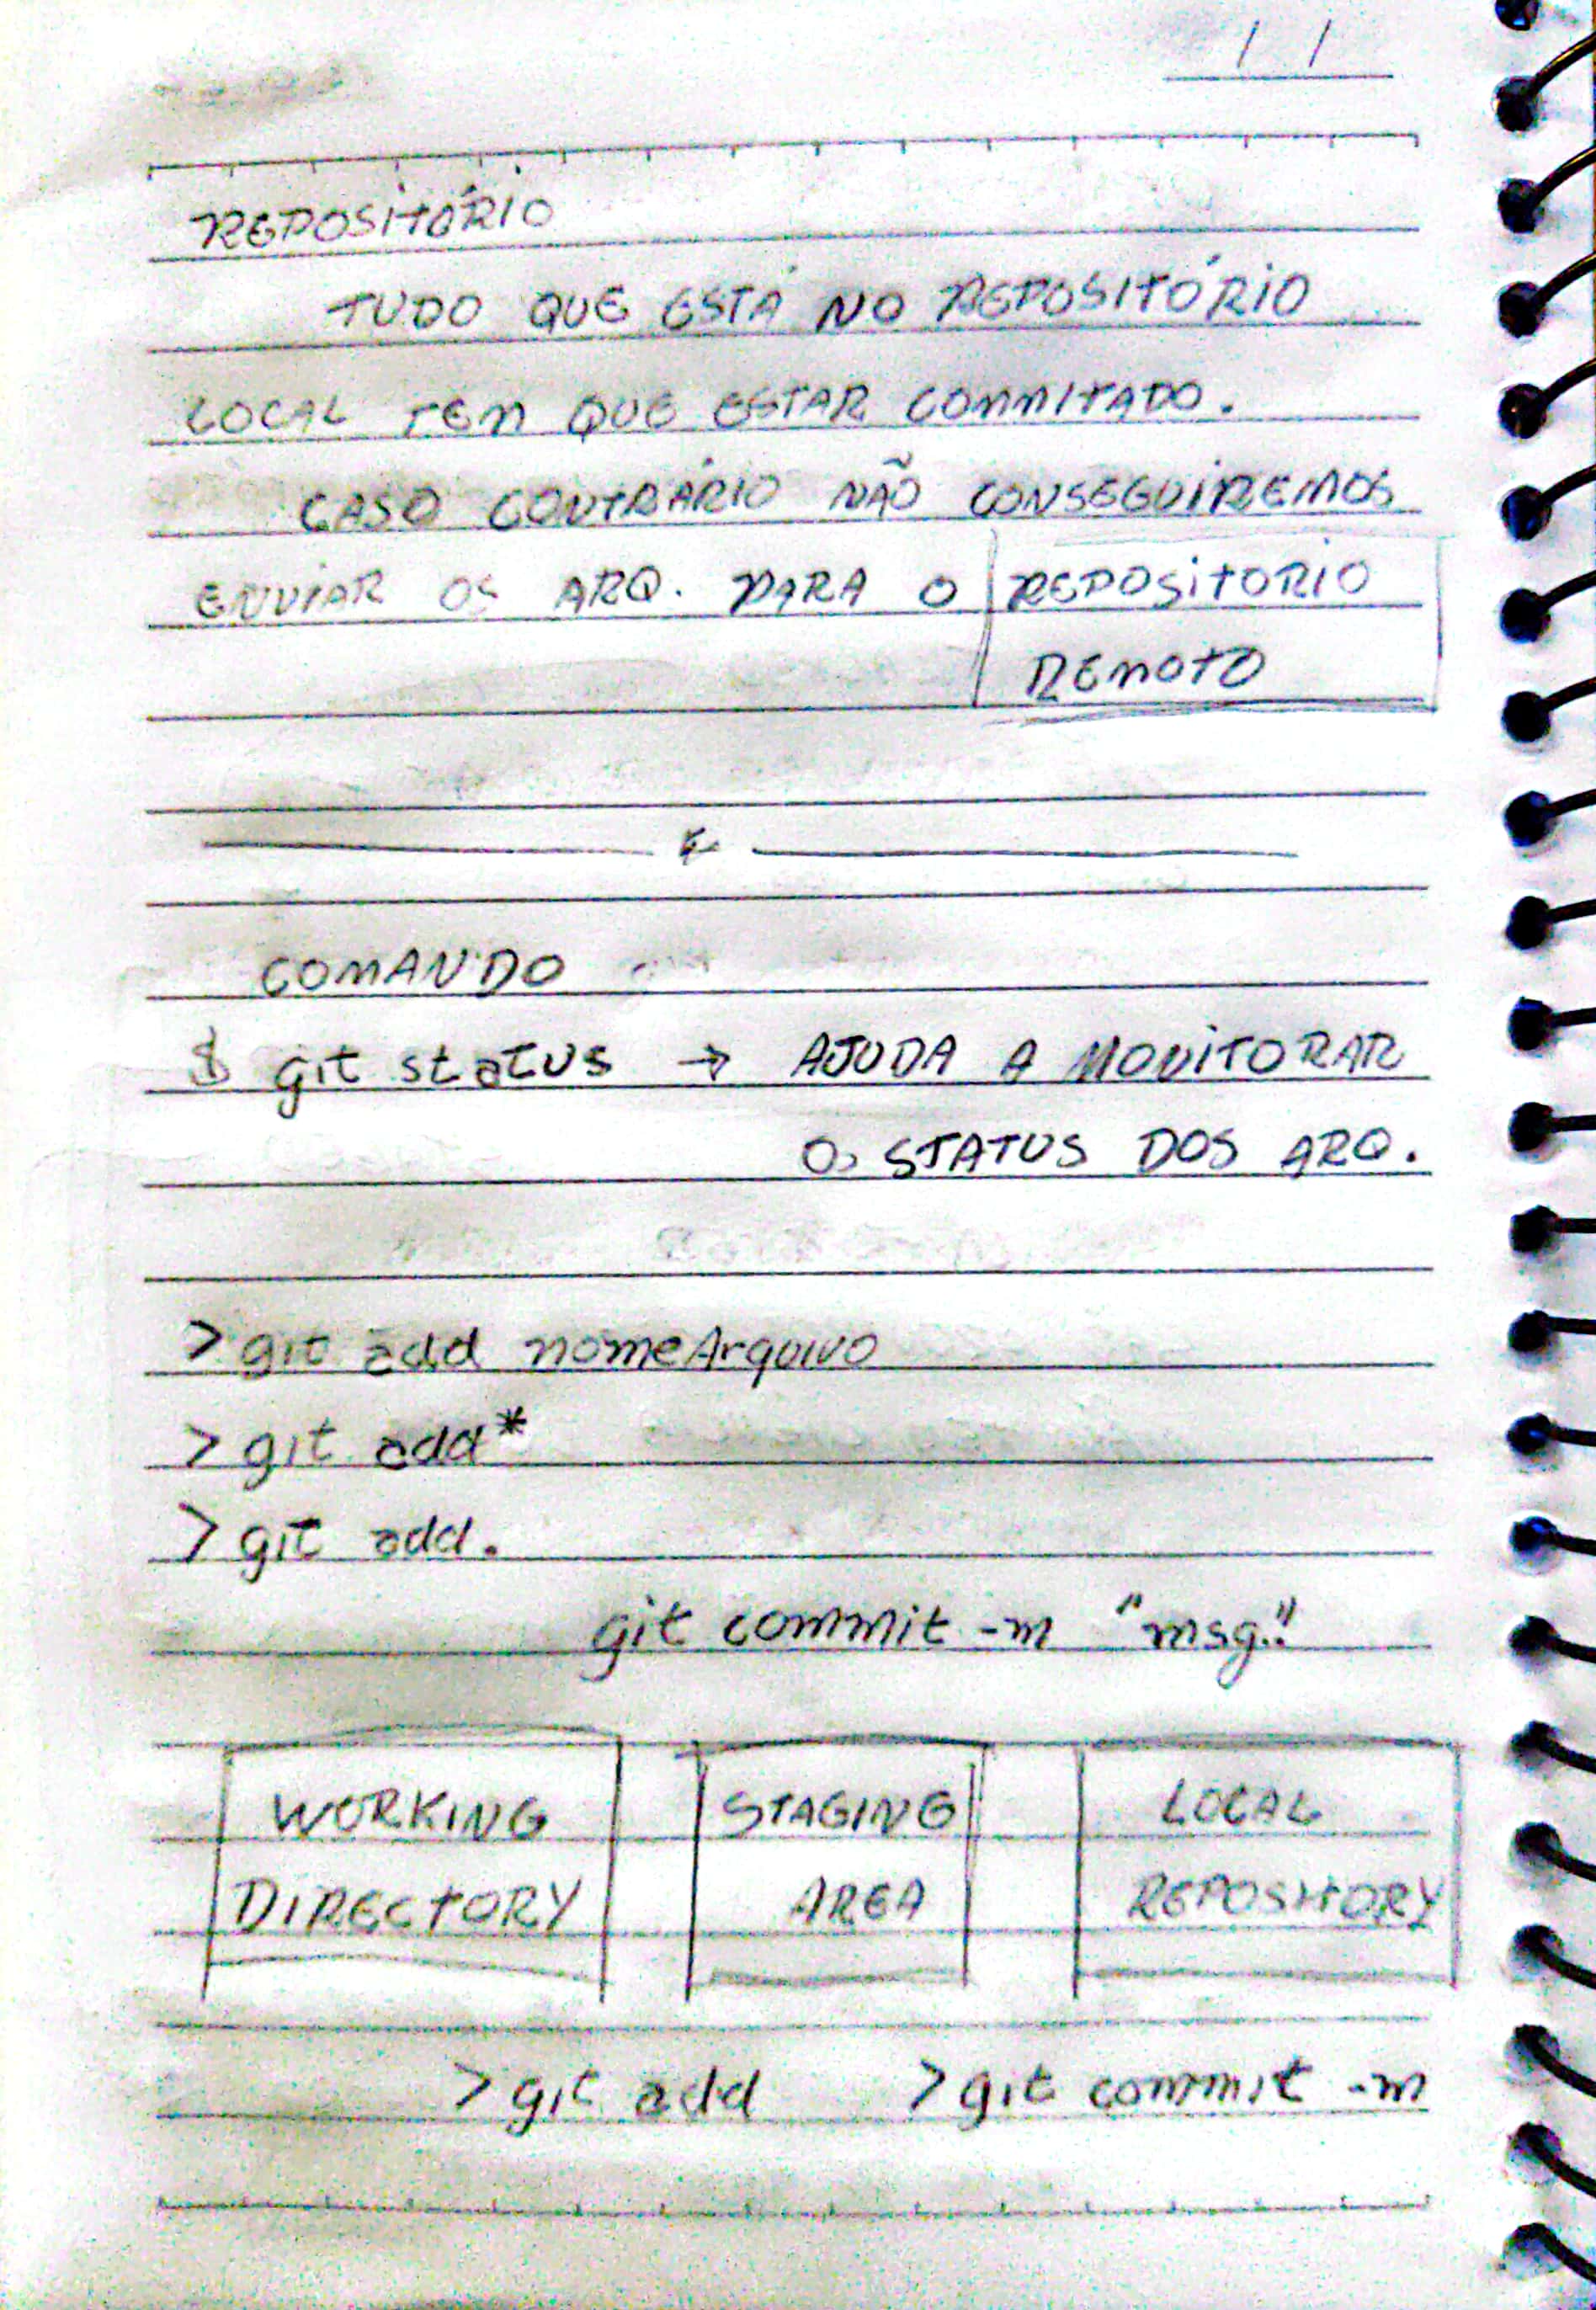 REPOSITÓRIO
TUDO QUE ESTÁ NO REPOSITÓRIO
LOCAL TEM QUE ESTAR COMMITADO.
CASO CONTRÁRIO NÃO CONSEGUIREMOS
ENVIAR OS ARQ. PARA O REPOSITORIO
REMOTO
COMANDO
$ git status → AJUDA A MONITORAR
OS STATUS DOS ARQ.
> git add nomeArquivo
> git add*
> git add.
git commit -m "msg."
WORKING STAGING LOCAL
DIRECTORY AREA REPOSITORY
> git add > git commit -m